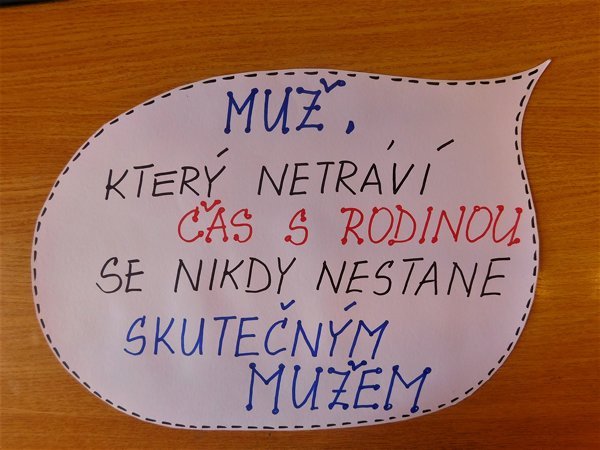 MUŽ,
KTERÝ NETRÁVÍ
ČAS S RODINOU
SE NIKDY NESTANE
SKUTEČNÝM
MUŽEM